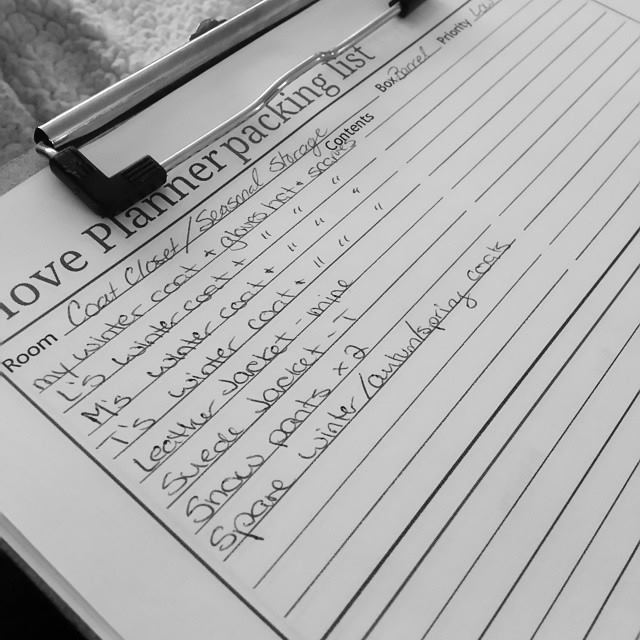 Move Planner packing list
Room Coat Closet/Seasonal Storage Box Barrel Priority Low
Contents
my winter coat + gloves, hat + scarves
L's winter coat + " " "
M's winter coat + " " "
T's winter coat + " " "
Leather Jacket - mine
Suede Jacket - T
Snow pants x 2
Spare winter/autumn/spring coats